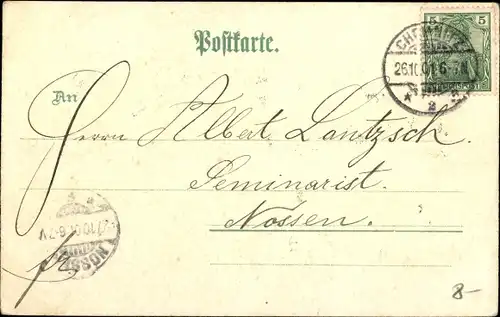 Postkarte.
5 5
CHEMNITZ
26.10.01 6-7N.
* a
An
Herrn Albert Lantzsch.
Seminarist.
Nossen.
NOSSEN
8-